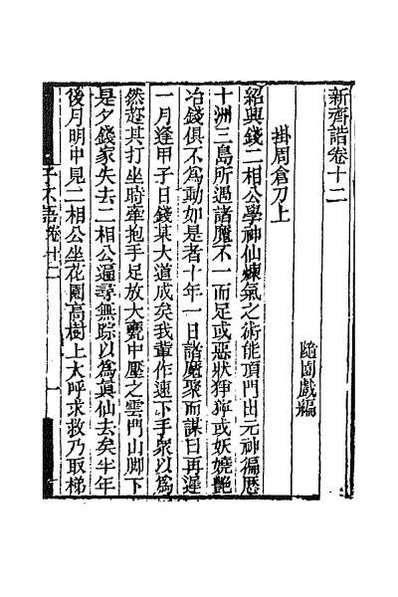 新齊諧卷十二
隨園戲編
掛周倉刀上
紹興錢二相公學神仙煉氣之術能頂門出元神徧歷
十洲三島所遇諸魔不一而足或惡狀猙獰或妖嬈艷
冶錢俱不為動如是者十年一日諸魔聚而謀曰再遲
一月逢甲子日錢某大道成矣我輩作速下手眾以為
然趁其打坐時牽抱手足放大甕中壓之雲門山脚下
是夕錢家失去二相公遍尋無踪以為眞仙去矣半年
後月明中見二相公坐花園高樹上大呼求救乃取梯
子不語卷十二
一